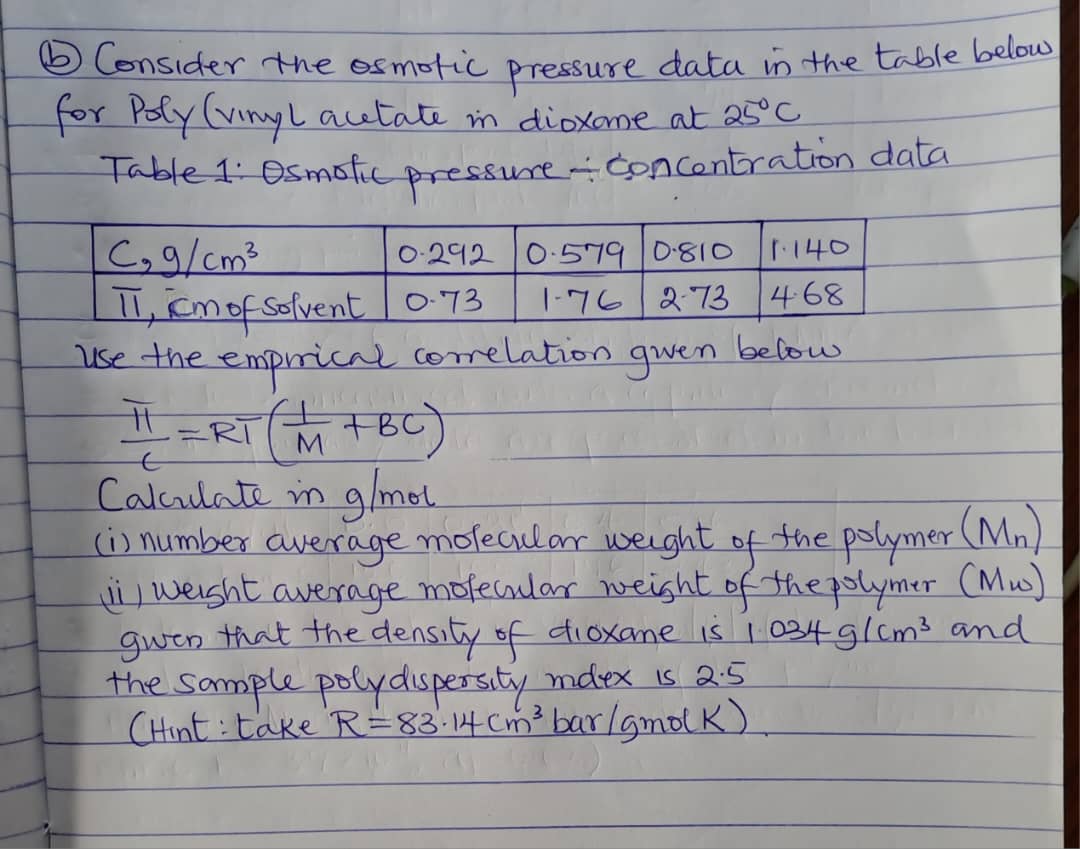 (b) Consider the osmotic pressure data in the table below
for Poly (vinyl acetate in dioxane at 25°C
Table 1: Osmotic pressure - Concentration data
C, g/cm³ 0.292 0.579 0.810 1.140
Π, cm of solvent 0.73 1.76 2.73 4.68
Use the emprical correlation given below
Π/C = RT(1/M + BC)
Calculate in g/mol
(i) number average molecular weight of the polymer (Mn)
ii) weight average molecular weight of the polymer (Mw)
given that the density of dioxane is 1.034 g/cm³ and
the sample polydispersity index is 2.5
(Hint: take R = 83.14 cm³ bar/gmol K).